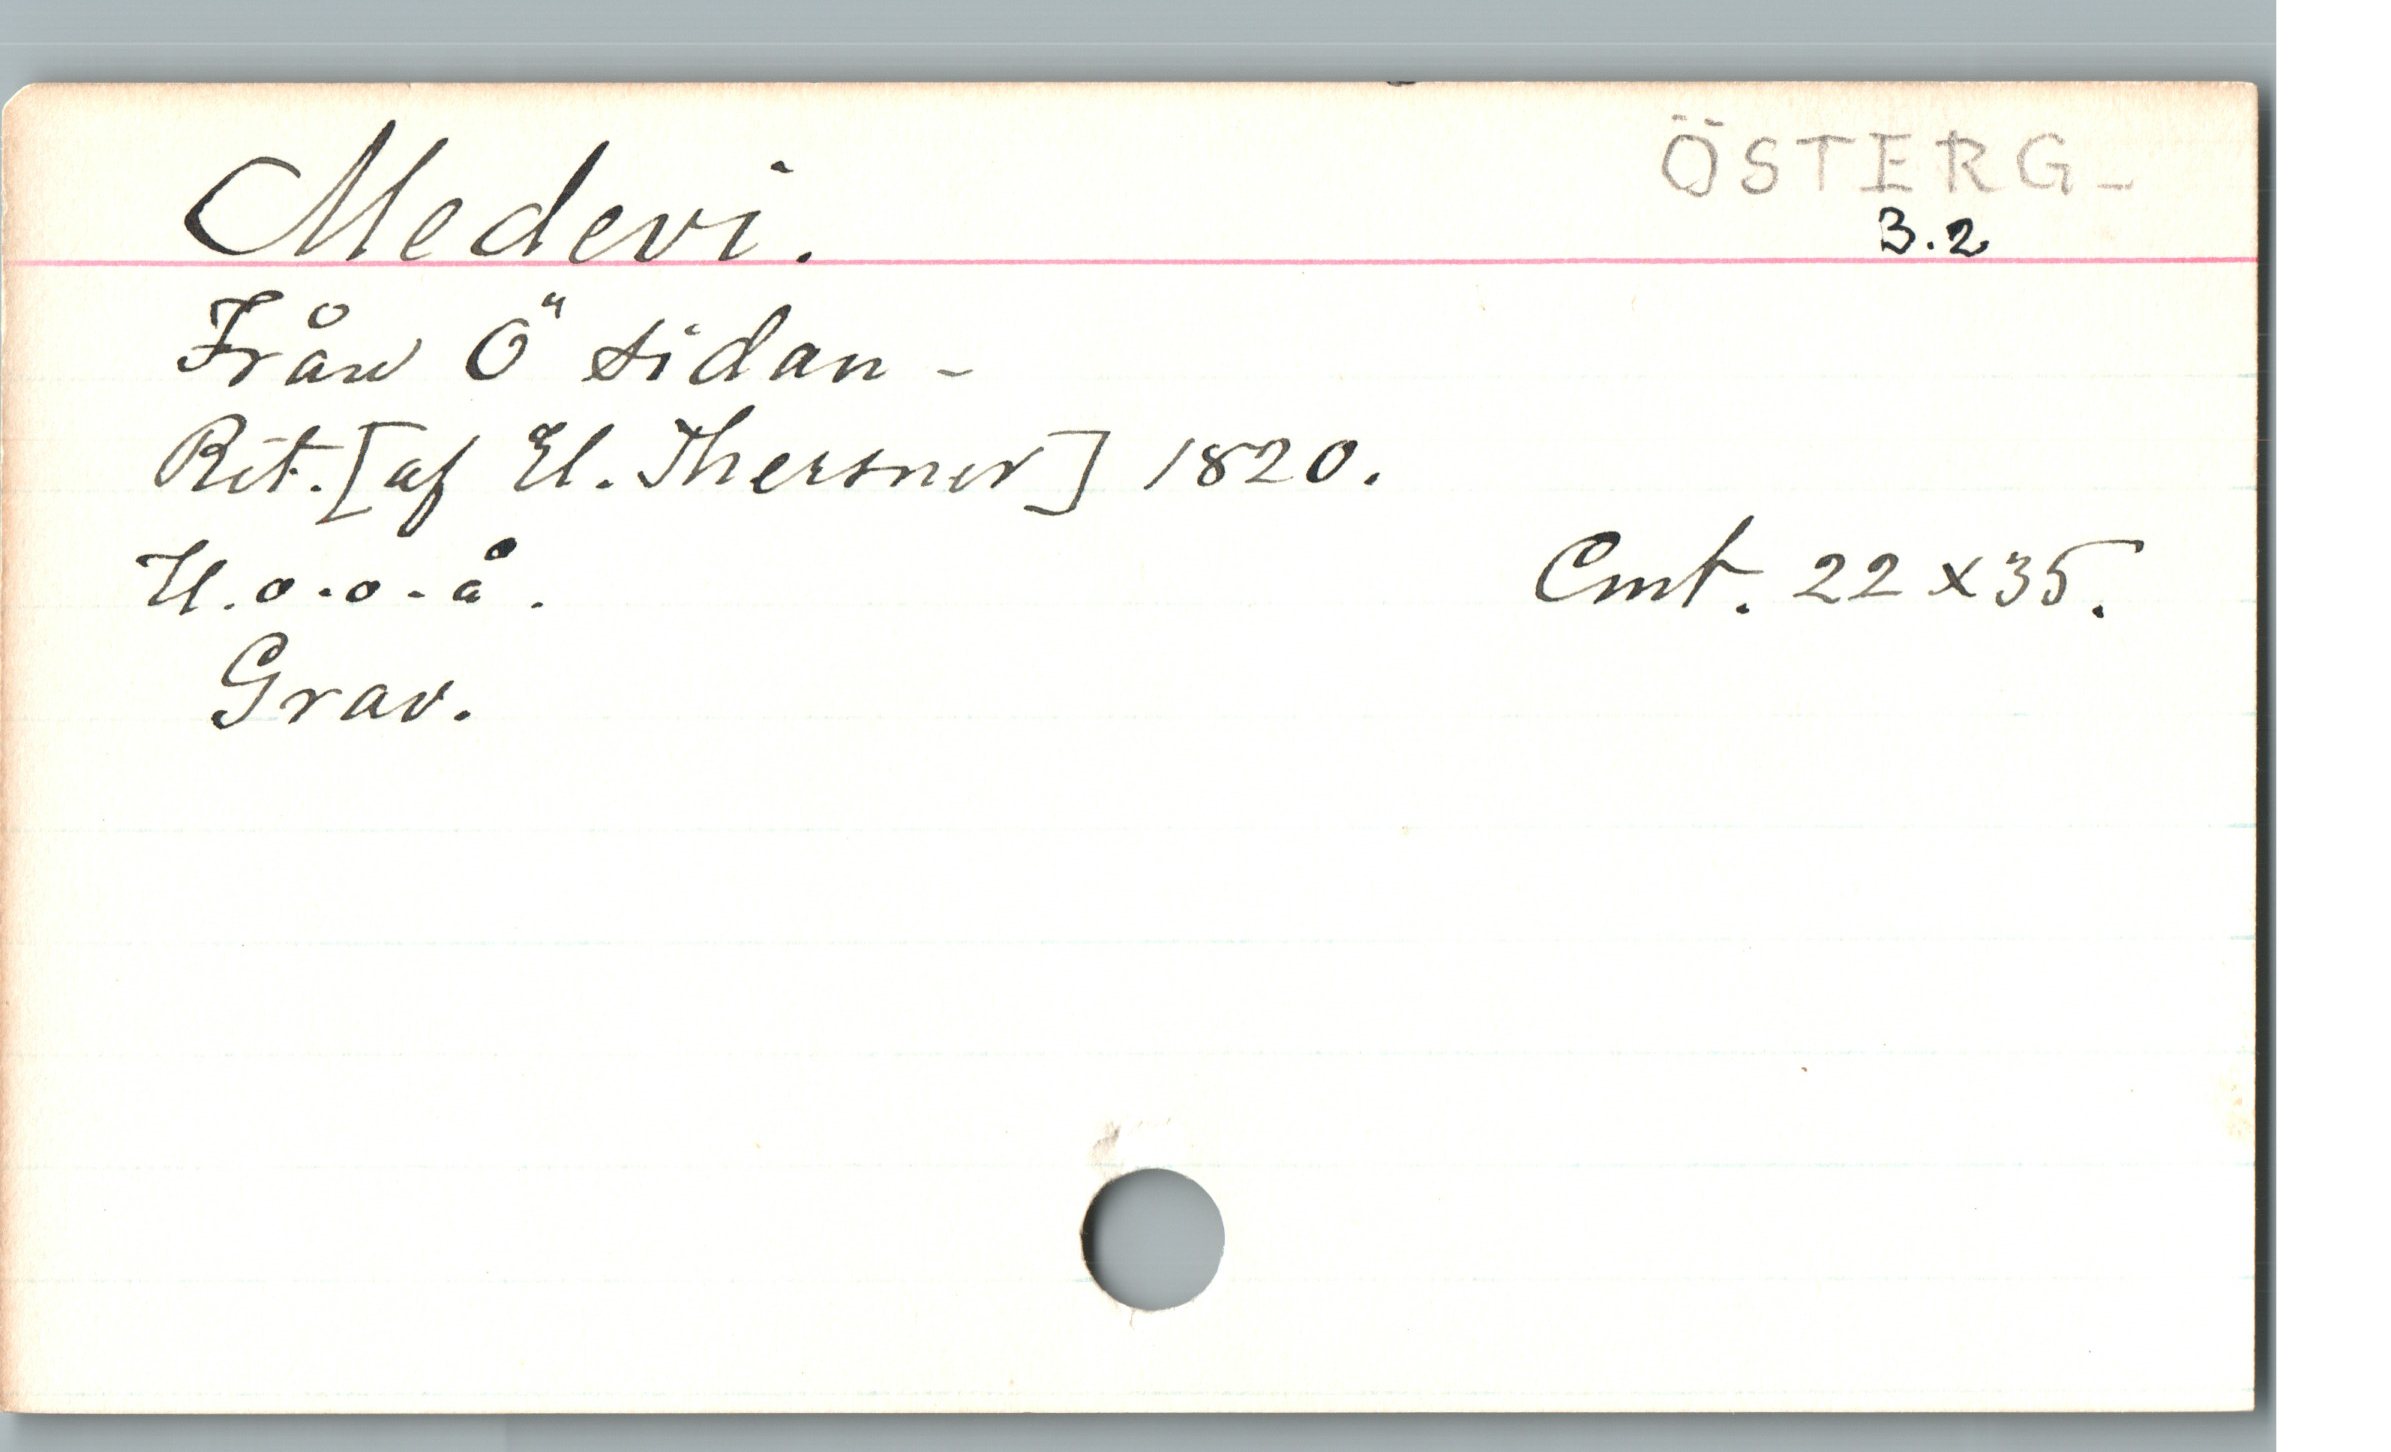 Medevi.
ÖSTERG-
3.2
Från Ö sidan -
Rit. [af Ul. Thersner] 1820.
U.o.o.å.
Cmt. 22 x 35.
Grav.